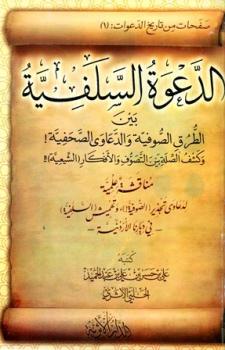 صفحات من تاريخ الدعوات: (٦)
الدعوة السلفية
بين
الطرق الصوفية والدعاوى الصحفية!
وكشف الصلة بين التصوف والأفكار (الشيعية)!!
مناقشة علمية
لدعاوى تجذير (الصوفية!)، وتهميش (السلفية!)
- في بلادنا الأردنية -
كتبه
علي بن حسن بن علي بن عبد الحميد
الحلبي الأثري
الدار الأثرية